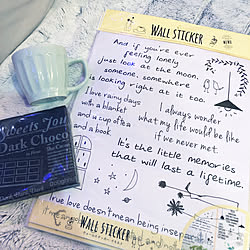 WALL STICKER
And if you're ever
feeling lonely
just look at the moon,
someone, somewhere
is looking right at it too.
I love rainy days
with a blanket
and a cup of tea
and a book.
I always wonder
what my life would be like
if we never met.
It's the little memories
that will last a lifetime.
Sweets You
Dark Choco
True love doesn't mean being inse
WALL STICKER